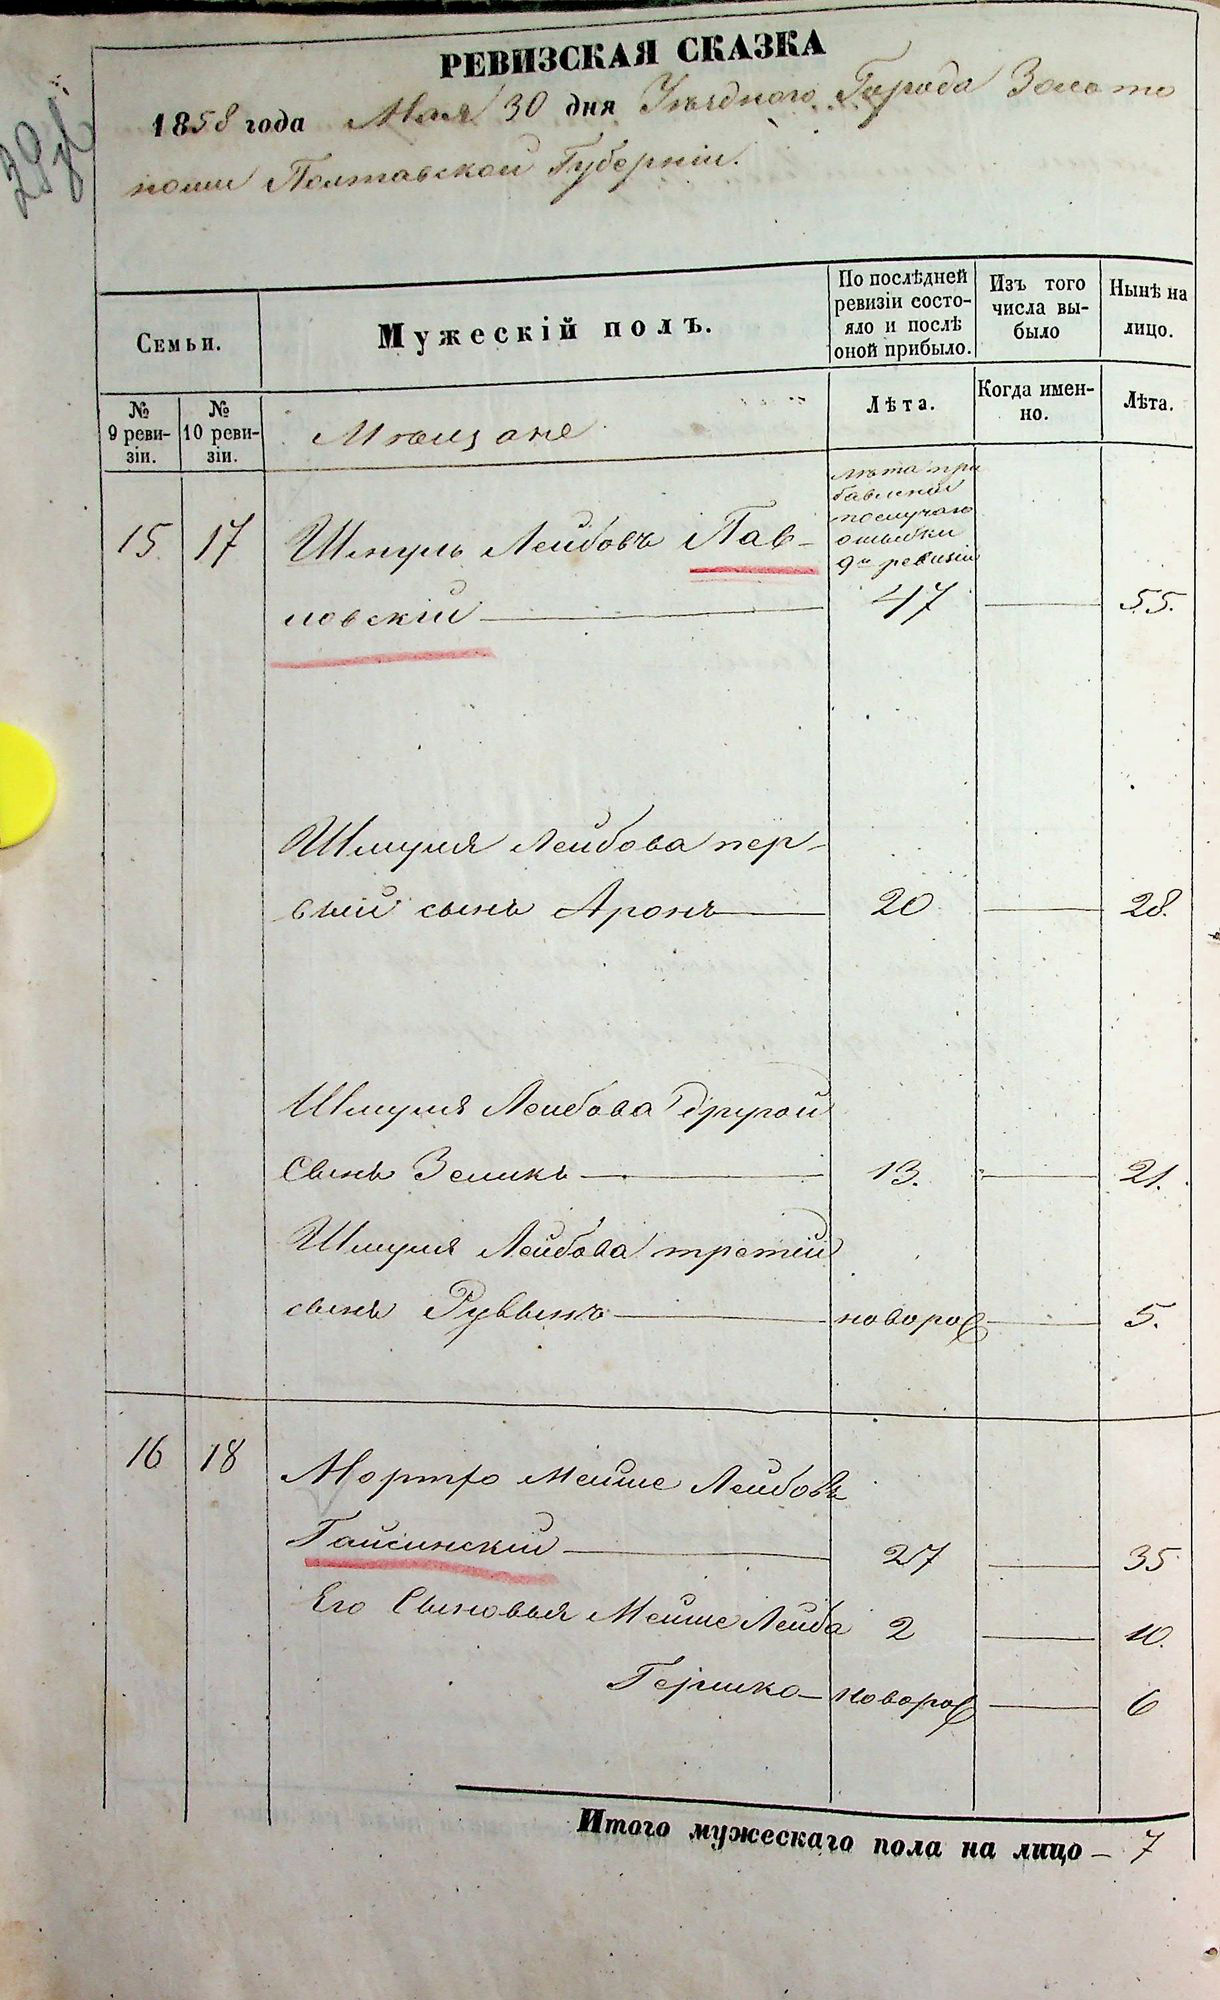 РЕВИЗСКАЯ СКАЗКА
1858 года Мая 30 дня Уѣзднаго Города Золото
ноши Полтавской Губерніи.
Семьи.
Мужескій полъ.
По послѣдней ревизіи состояло и послѣ оной прибыло.
Изъ того числа выбыло
Нынѣ на лицо.
№ 9 ревизіи.
№ 10 ревизіи.
Мѣщане
Лѣта.
Когда именно.
Лѣта.
лѣта при
бавлены
послучаю
ошибки
9й ревизіи
15 17 Шмуль Лейбовъ Пав-
ловскій 47 55.
Шмуля Лейбова пер-
вый сынъ Аронъ 20 28.
Шмуля Лейбова другой
сынъ Зеликъ 13. 21.
Шмуля Лейбова третій
сынъ Руввинъ новорож 5.
16 18 Мортхо Мейше Лейбовъ
Гайсинскій 27 35
Его Сыновья Мейше Лейба 2 10.
Гершко новорож 6
Итого мужескаго пола на лицо – 7